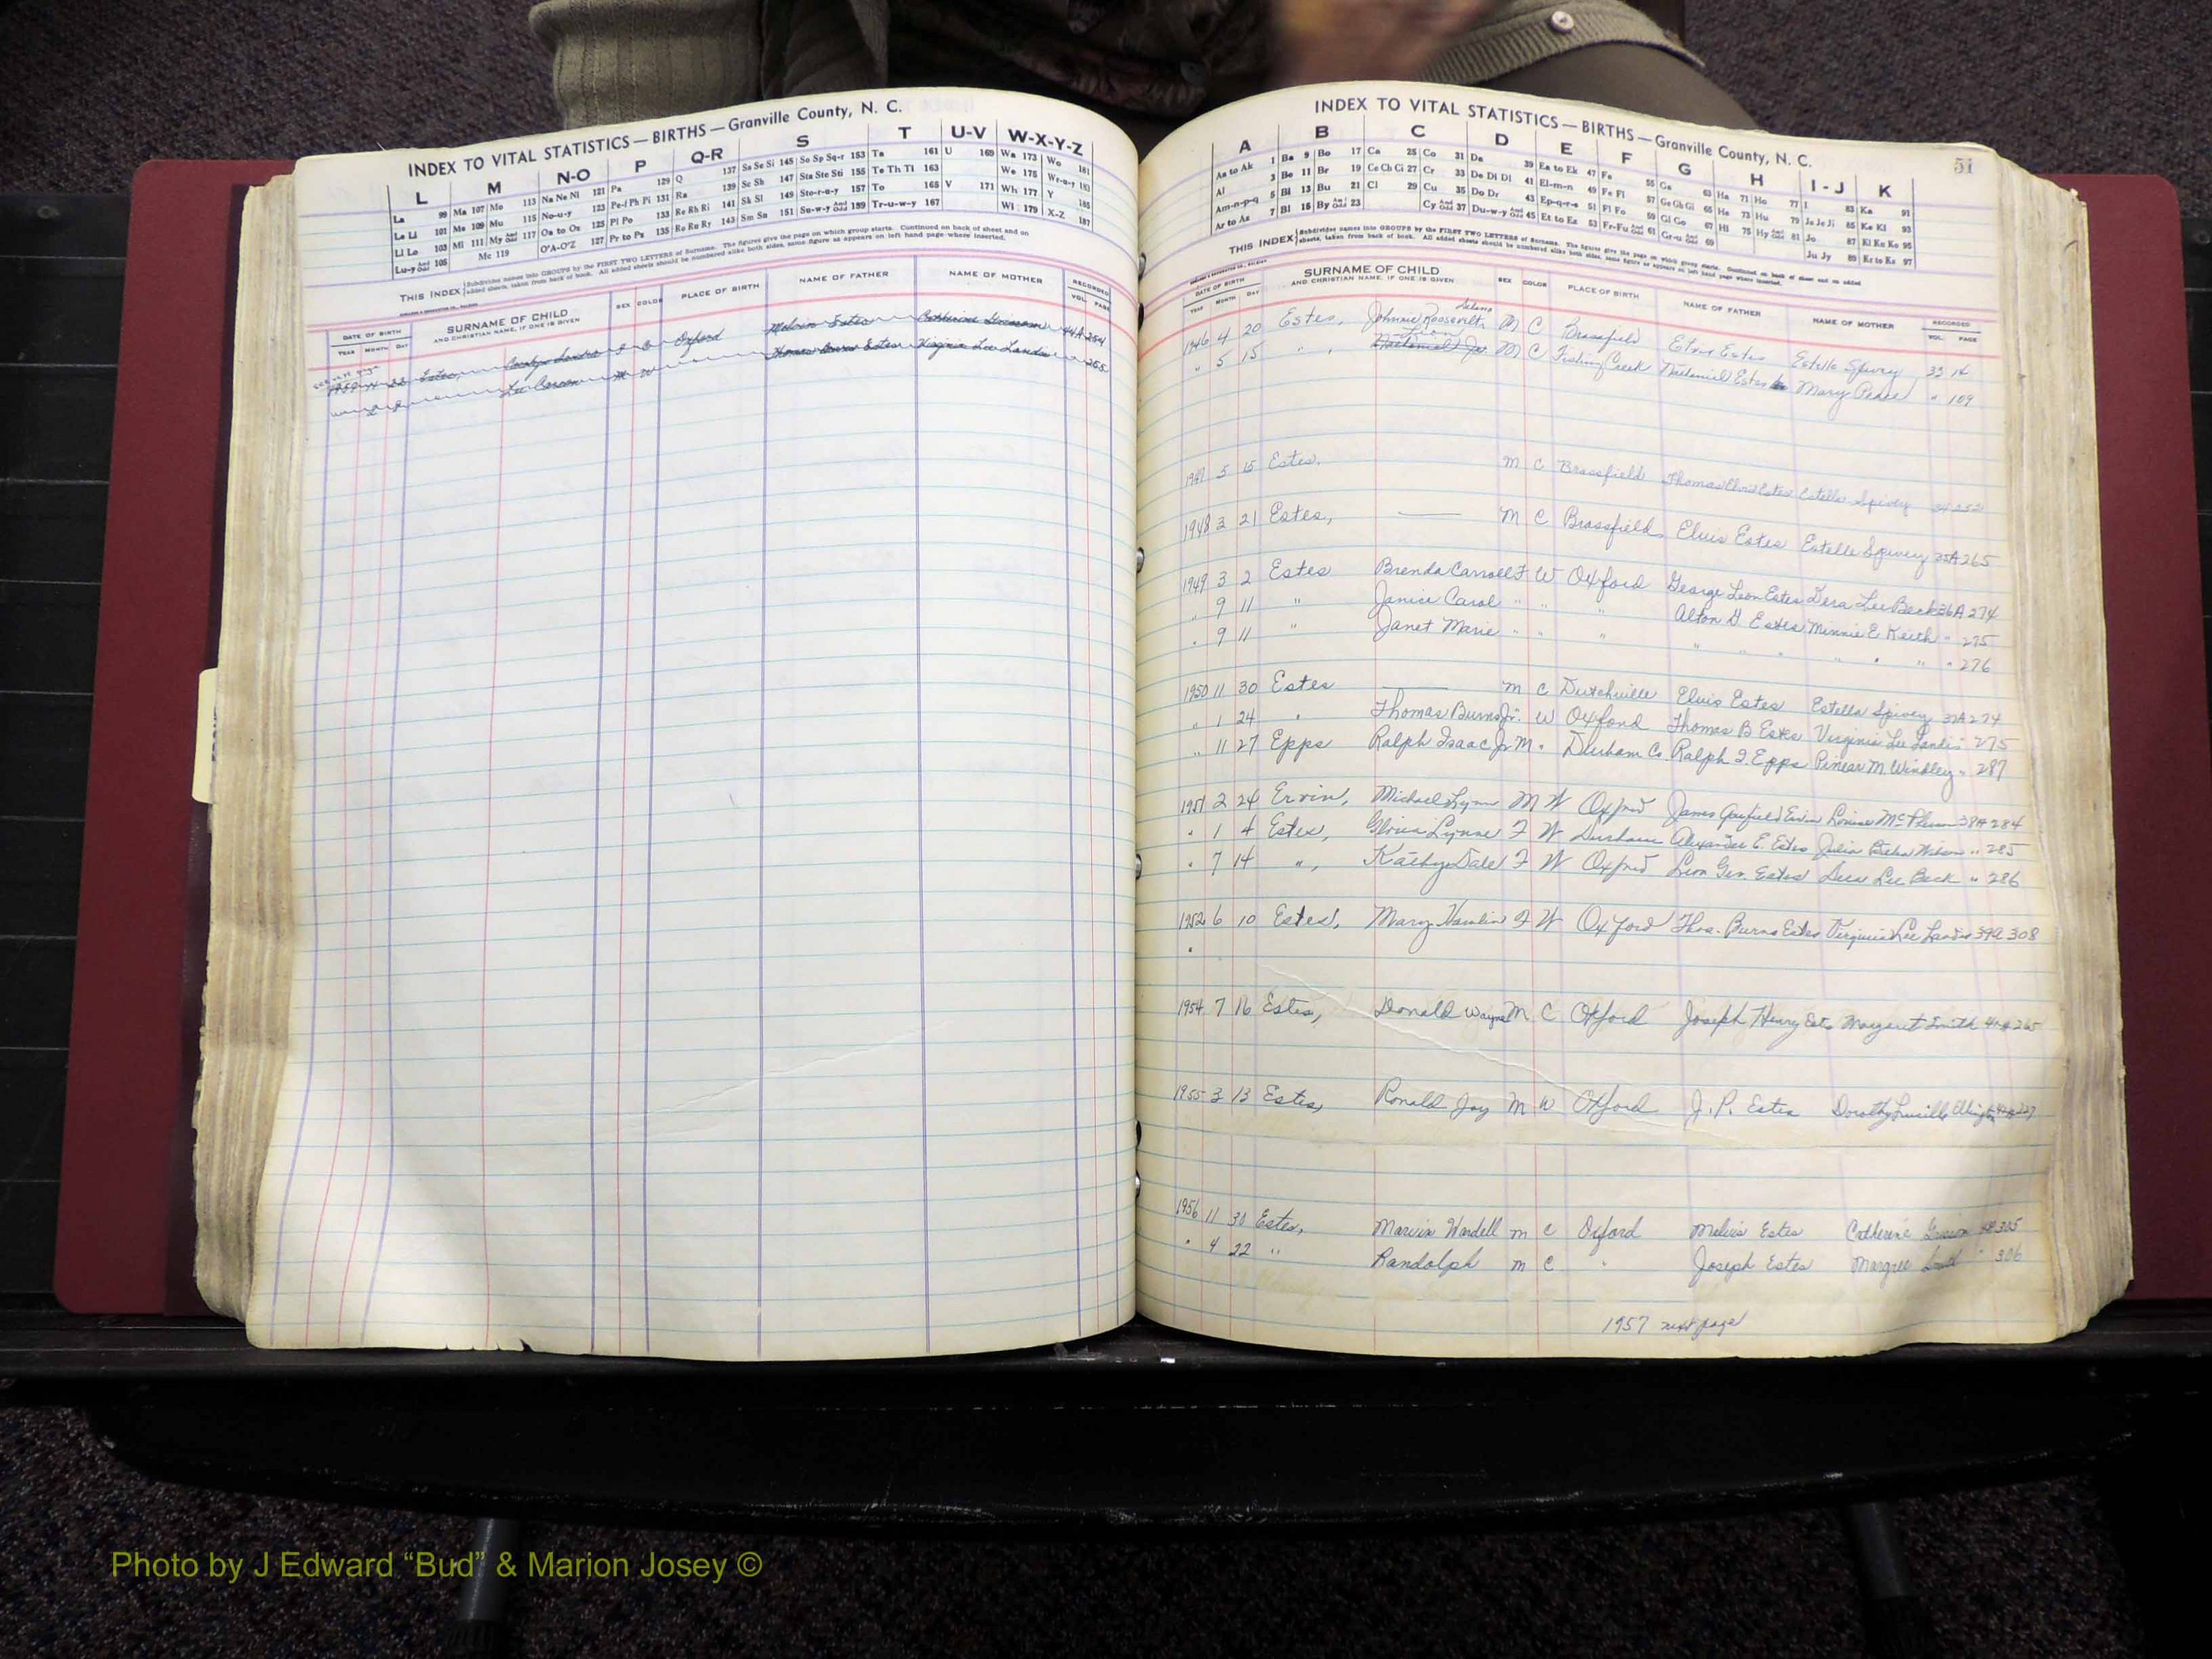 INDEX TO VITAL STATISTICS — BIRTHS — Granville County, N. C.
L M N-O P Q-R S T U-V W-X-Y-Z
La 99 Ma 107 Mo 113 Na Ne Ni 121 Pa 129 Q 137 Sa Se Si 145 So Sp Sq-r 153 Ta 161 U 169 Wa 173 Wo 181
Le Li 101 Me 109 Mu 115 No-u-y 123 Pe-f Ph Pi 131 Ra 139 Sc Sh 147 Sta Ste Sti 155 Te Th Ti 163 We 175 Wr-u-y 183
Ll Lo 103 Mi 111 My And Odd 117 Oa to Ox 125 Pl Po 133 Re Rh Ri 141 Sk Sl 149 Sto-r-u-y 157 To 165 V 171 Wh 177 Y 185
Lu-y And Odd 105 Mc 119 O'A-O'Z 127 Pr to Ps 135 Ro Ru Ry 143 Sm Sn 151 Su-w-y And Odd 159 Tr-u-w-y 167 Wi 179 X-Z 187
THIS INDEX Subdivides names into GROUPS by the FIRST TWO LETTERS of Surname. The figures give the page on which group starts. Continued on back of sheet and on
added sheets, taken from back of book. All added sheets should be numbered alike both sides, same figure as appears on left hand page where inserted.
DATE OF BIRTH SURNAME OF CHILD SEX COLOR PLACE OF BIRTH NAME OF FATHER NAME OF MOTHER RECORDED
YEAR MONTH DAY AND CHRISTIAN NAME, IF ONE IS GIVEN VOL. PAGE
Estes, Oxford Melvin Estes Catherine 44A 254
Lee M W Thomas Burns Estes Virginia Lee Landis 255
INDEX TO VITAL STATISTICS — BIRTHS — Granville County, N. C.
51
A B C D E F G H I-J K
Aa to Ak 1 Ba 9 Bo 17 Ca 25 Co 31 Da 39 Ea to Ek 47 Fa 55 Ga 63 Ha 71 Ho 77 I 83 Ka 91
Al 3 Be 11 Br 19 Ce Ch Ci 27 Cr 33 De Di Dl 41 El-m-n 49 Fe Fi 57 Ge Gh Gi 65 He 73 Hu 79 Ja Je Ji 85 Ke Ki 93
Am-n-p-q 5 Bi 13 Bu 21 Cl 29 Cu 35 Do Dr 43 Ep-q-r-s 51 Fl Fo 59 Gl Go 67 Hi 75 Hy And Odd 81 Jo 87 Kl Kn Ko 95
Ar to Az 7 Bl 15 By And Odd 23 Cy And Odd 37 Du-w-y And Odd 45 Et to Ez 53 Fr-Fu And Odd 61 Gr-u And Odd 69 Ju Jy 89 Kr to Kz 97
THIS INDEX Subdivides names into GROUPS by the FIRST TWO LETTERS of Surname. The figures give the page on which group starts. Continued on back of sheet and on added
sheets, taken from back of book. All added sheets should be numbered alike both sides, same figure as appears on left hand page where inserted.
DATE OF BIRTH SURNAME OF CHILD SEX COLOR PLACE OF BIRTH NAME OF FATHER NAME OF MOTHER RECORDED
YEAR MONTH DAY AND CHRISTIAN NAME, IF ONE IS GIVEN VOL. PAGE
1946 4 20 Estes, Johnnie Roosevelt M C Brassfield Elvis Estes Estelle Spivey 33 14
" 5 15 " , Leon Nathaniel Jr M C Fishing Creek Nathaniel Estes Mary Pease " 109
1947 5 15 Estes. M C Brassfield Thomas Elvis Estes Estella Spivey 34 252
1948 3 21 Estes, — M C Brassfield Elvis Estes Estelle Spivey 35A 265
1949 3 2 Estes Brenda Carroll F W Oxford George Leon Estes Dera Lee Beck 36A 274
" 9 11 " Janice Carol " " " Alton G Estes Minnie E Keith " 275
" 9 11 " Janet Marie " " " " " " " " " " 276
1950 11 30 Estes — M C Dutchville Elvis Estes Estella Spivey 37A 274
" 1 24 " Thomas Burns Jr. W Oxford Thomas B Estes Virginia Lee Landis " 275
" 11 27 Epps Ralph Isaac Jr M " Durham Co. Ralph I. Epps M. Windley " 287
1951 2 24 Ervin, Michael Lynn M W Oxford James Garfield Ervin Louise 38A 284
" 1 4 Estes, Gloria Lynne F W Durham Alexander E. Estes Julia Wilson " 285
" 7 14 " , Kathy Dale F W Oxford Leon Geo. Estes Dera Lee Beck " 286
1952 6 10 Estes, Mary Hamlin F W Oxford Thos. Burns Estes Virginia Lee Landis 39A 308
"
1954 7 16 Estes, Donald Wayne M C Oxford Joseph Henry Estes Margaret Smith 265
1955 3 13 Estes, Ronald Jay M W Oxford J. P. Estes Dorothy Lucille
1956 11 30 Estes, Marvin Wardell M C Oxford Melvin Estes Catherine 305
" 4 22 " Randolph M C " Joseph Estes " 306
1957 next page
Photo by J Edward “Bud” & Marion Josey ©